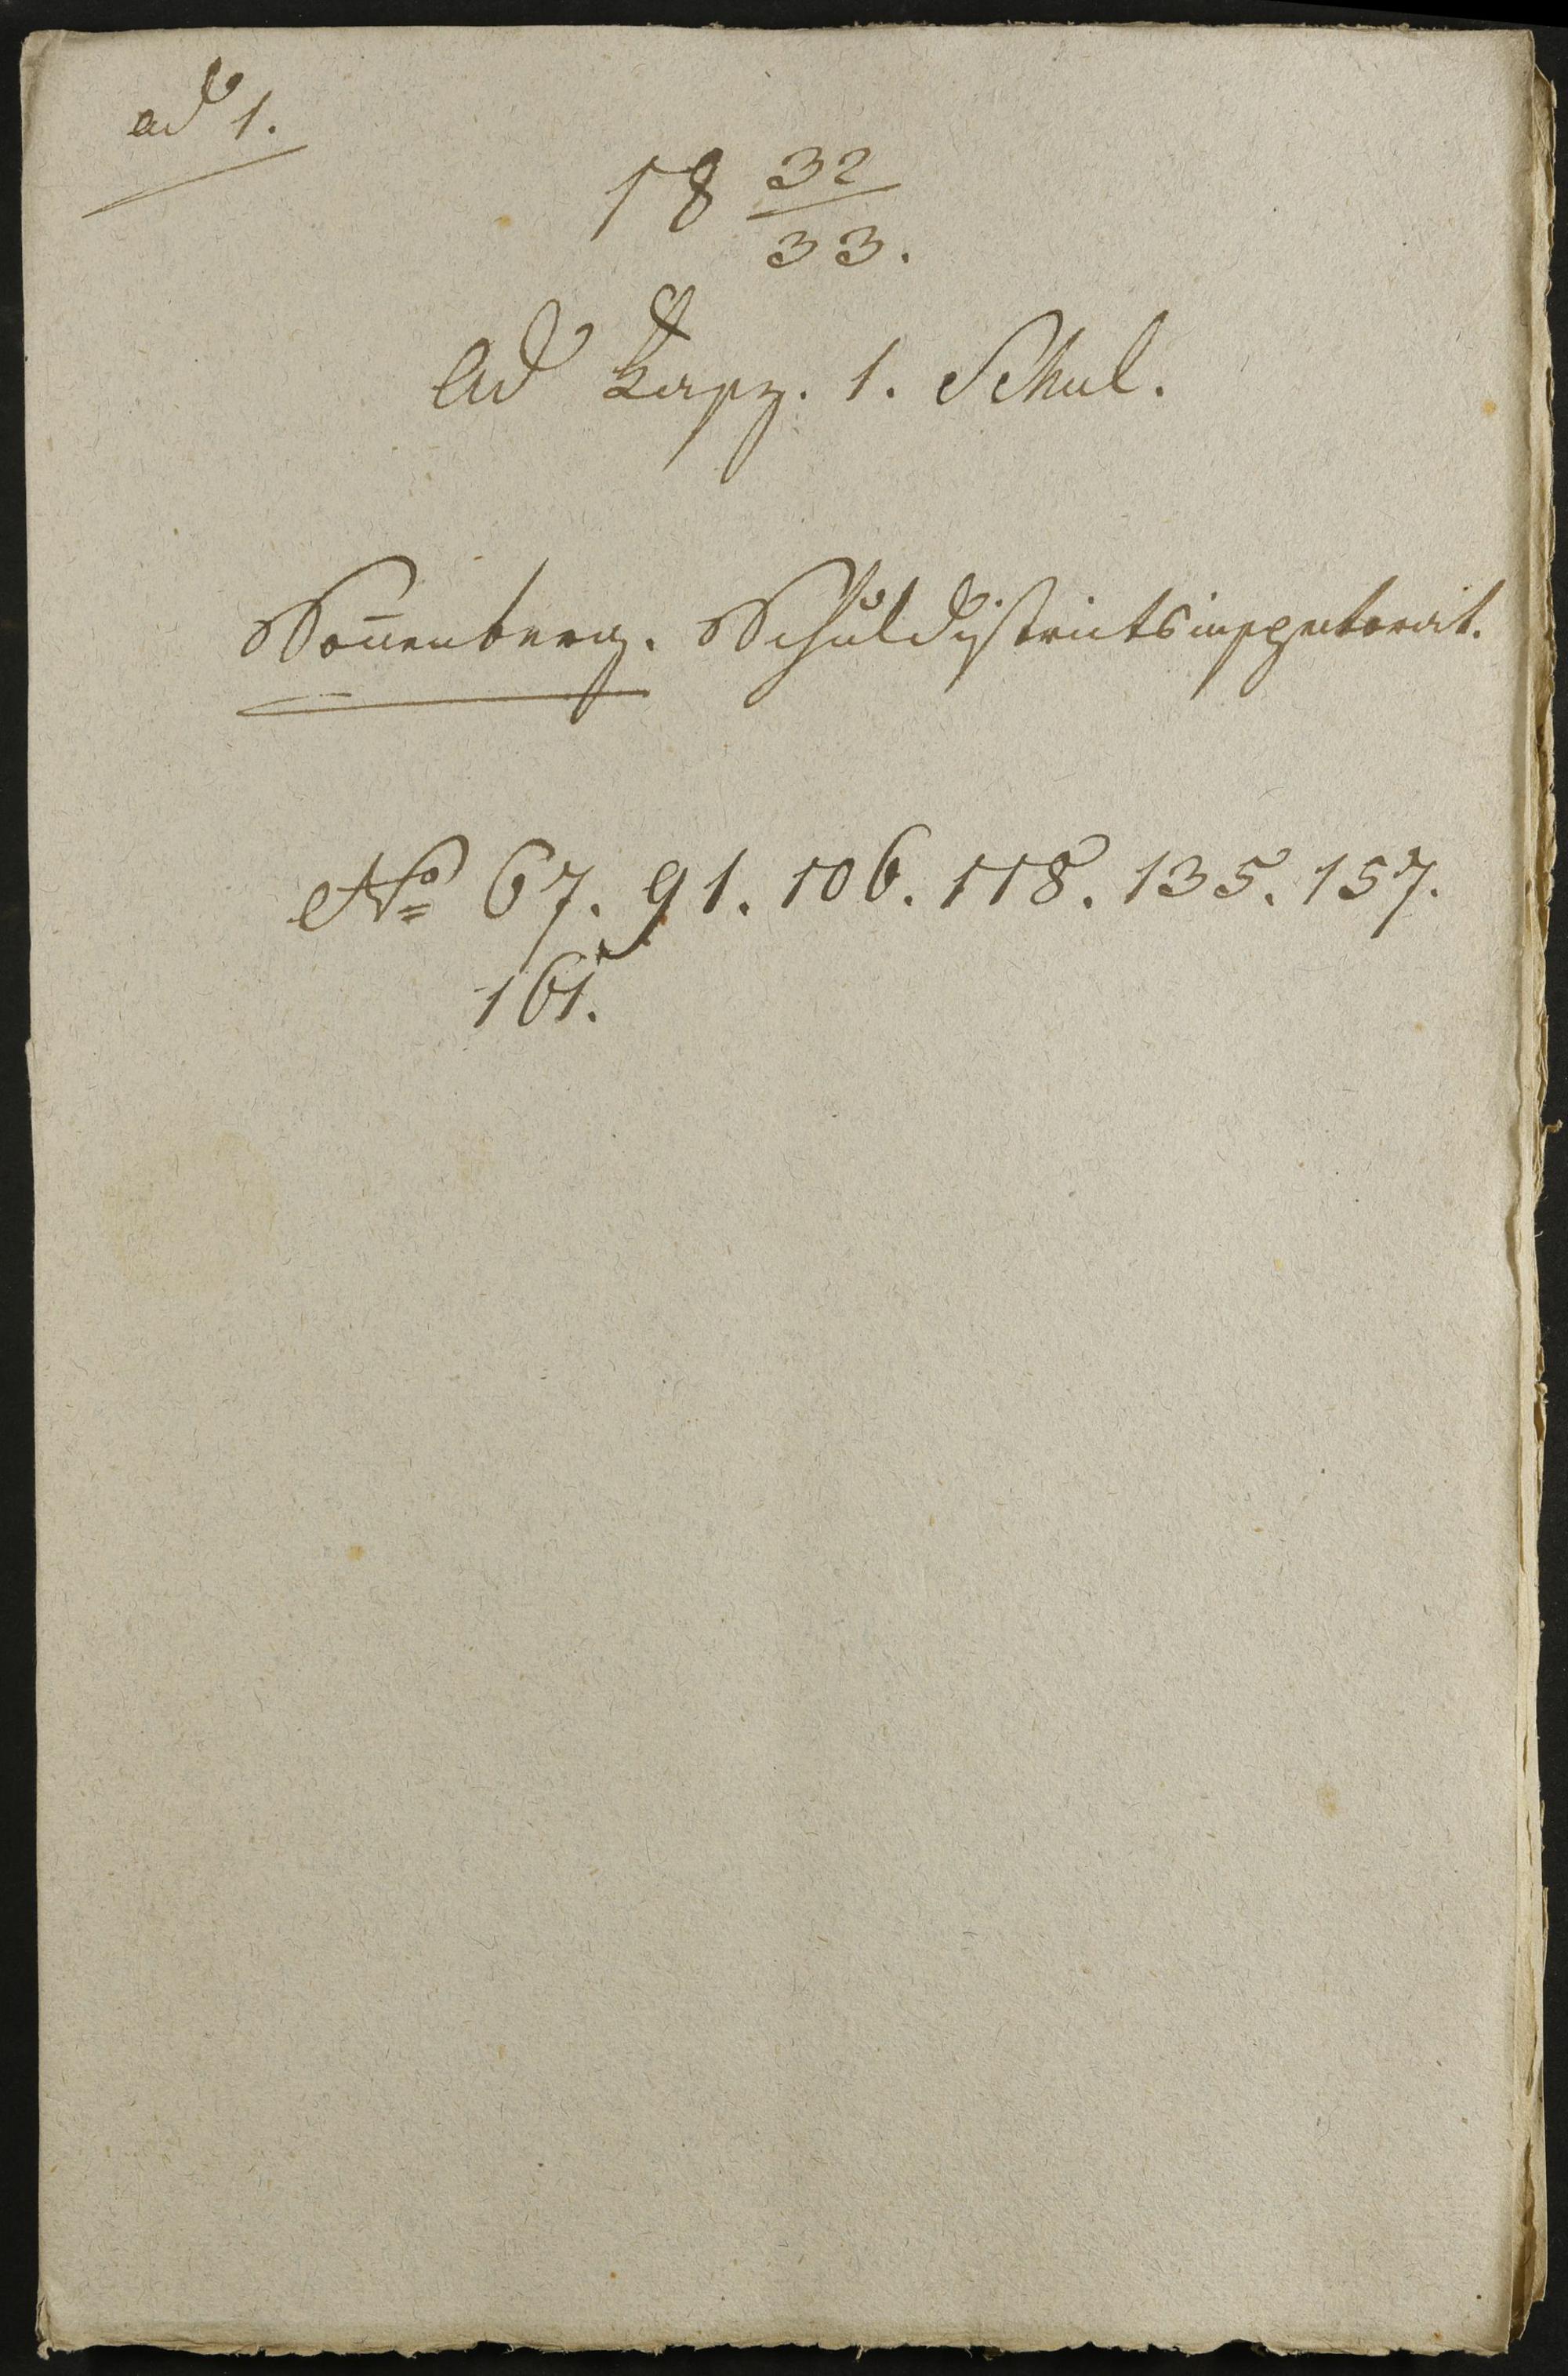 ad 1.
18 32/33.
Ad Kapz. 1. Schul.
Sōnenberg. Schuldistrictsinspectorat.
No 67. 91. 106. 118. 135. 157.
161.